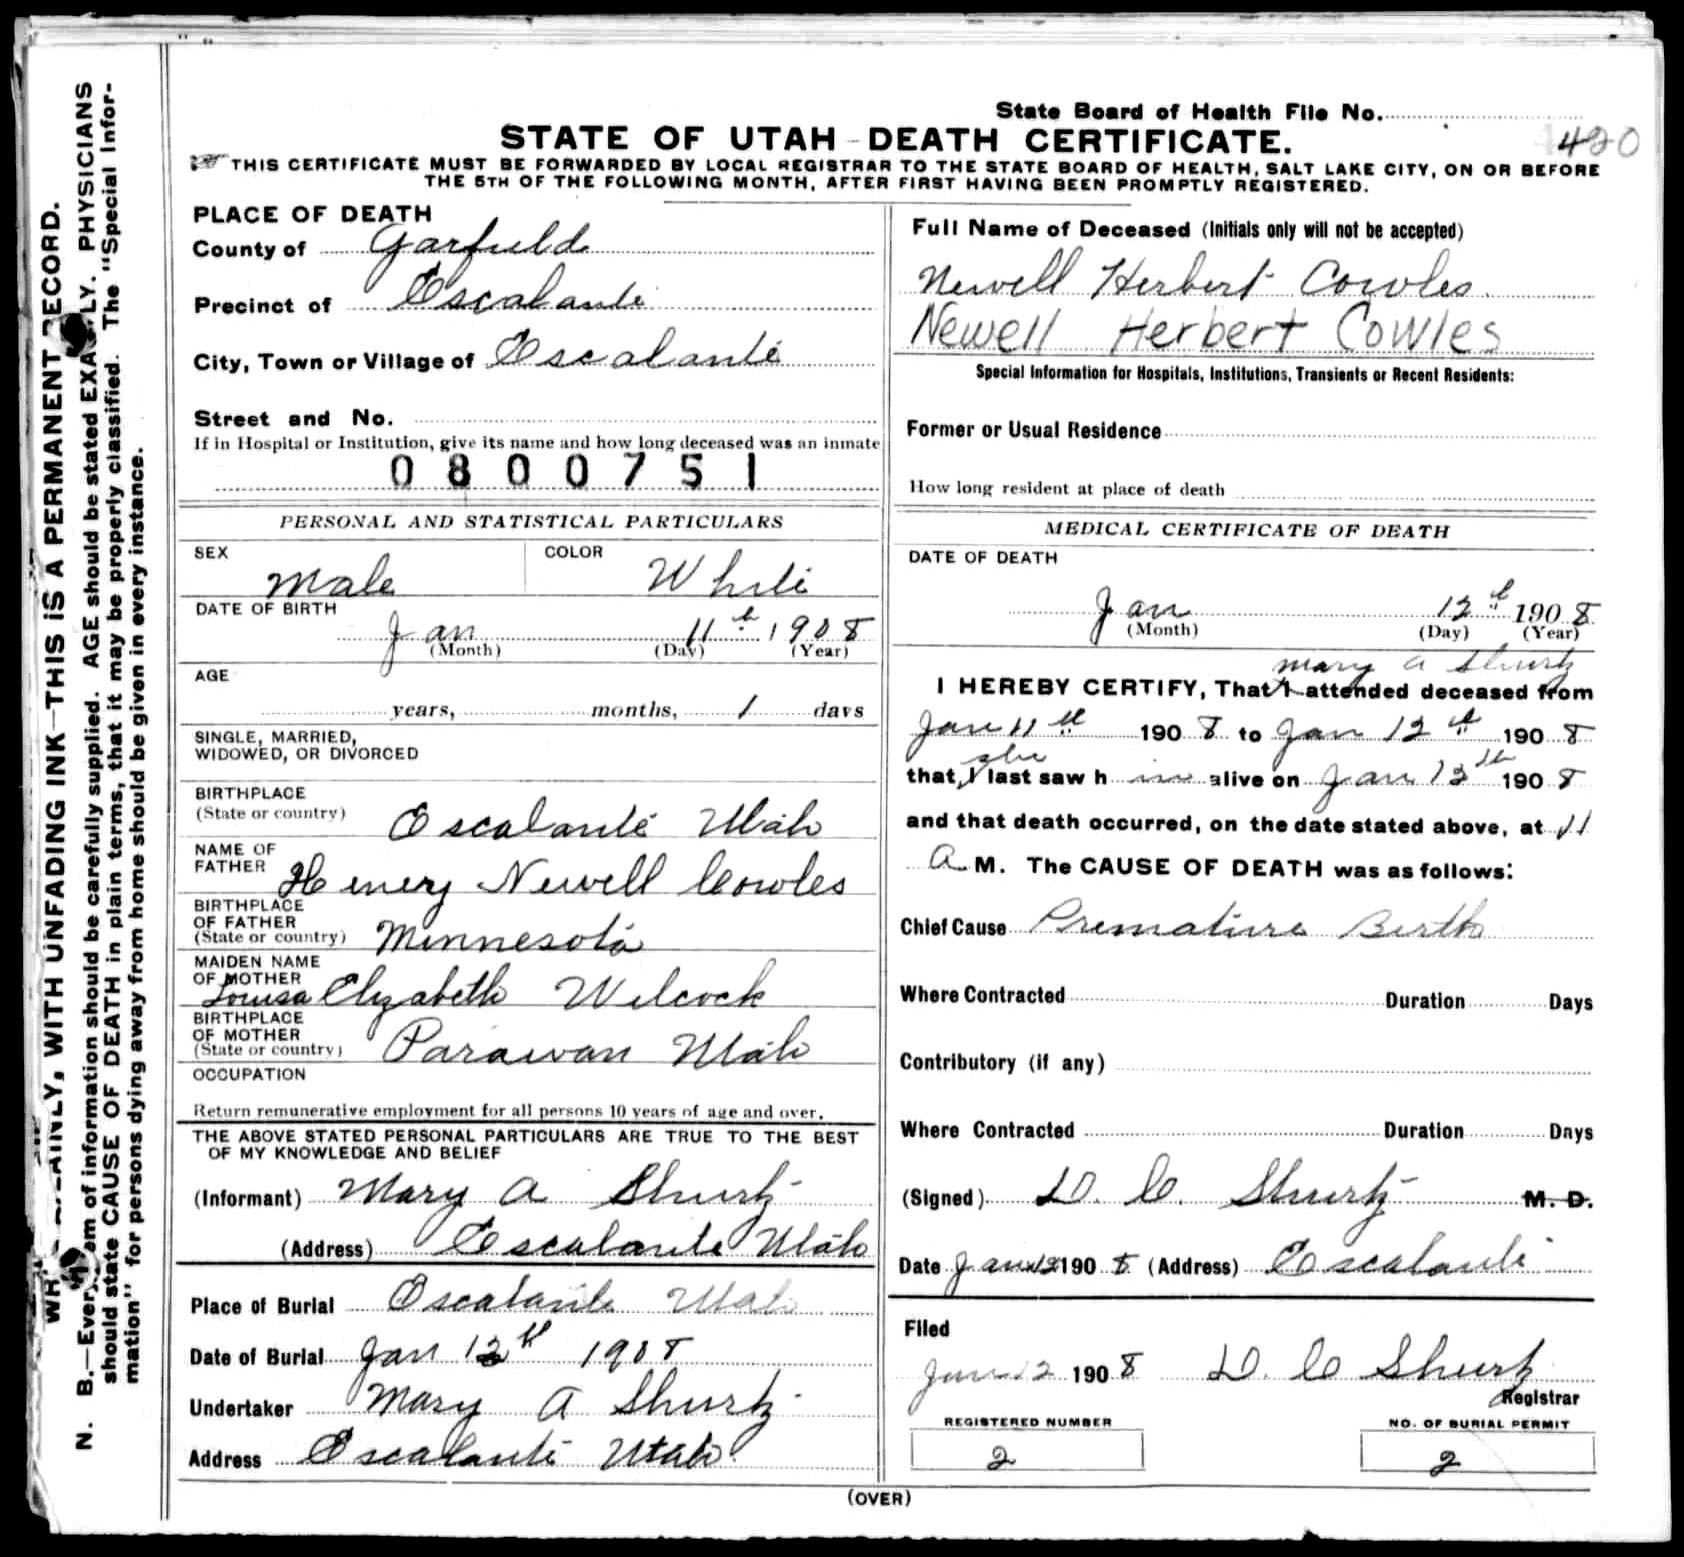 State Board of Health File No.
STATE OF UTAH - DEATH CERTIFICATE.
420
THIS CERTIFICATE MUST BE FORWARDED BY LOCAL REGISTRAR TO THE STATE BOARD OF HEALTH, SALT LAKE CITY, ON OR BEFORE
THE 5TH OF THE FOLLOWING MONTH, AFTER FIRST HAVING BEEN PROMPTLY REGISTERED.
PLACE OF DEATH
County of Garfield
Precinct of Escalante
City, Town or Village of Escalante
Street and No.
If in Hospital or Institution, give its name and how long deceased was an inmate
0800751
PERSONAL AND STATISTICAL PARTICULARS
SEX Male COLOR White
DATE OF BIRTH
Jan 11th 1908
(Month) (Day) (Year)
AGE
years, months, 1 days
SINGLE, MARRIED,
WIDOWED, OR DIVORCED
BIRTHPLACE
(State or country) Escalante Utah
NAME OF
FATHER Henery Newell Cowles
BIRTHPLACE
OF FATHER
(State or country) Minnesota
MAIDEN NAME
OF MOTHER
Louisa Elizabeth Wilcock
BIRTHPLACE
OF MOTHER
(State or country) Parawan Utah
OCCUPATION
Return remunerative employment for all persons 10 years of age and over.
THE ABOVE STATED PERSONAL PARTICULARS ARE TRUE TO THE BEST
OF MY KNOWLEDGE AND BELIEF
(Informant) Mary A Shurtz
(Address) Escalante Utah
Place of Burial Escalante Utah
Date of Burial Jan 12th 1908
Undertaker Mary A Shurtz
Address Escalante Utah
Full Name of Deceased (Initials only will not be accepted)
Newell Herbert Cowles
Newell Herbert Cowles
Special Information for Hospitals, Institutions, Transients or Recent Residents:
Former or Usual Residence
How long resident at place of death
MEDICAL CERTIFICATE OF DEATH
DATE OF DEATH
Jan 12th 1908
(Month) (Day) (Year)
mary a Shurtz
I HEREBY CERTIFY, That I attended deceased from
Jan 11th 1908 to Jan 12th 1908
she
that I last saw h im alive on Jan 12th 1908
and that death occurred, on the date stated above, at 11
A M. The CAUSE OF DEATH was as follows:
Chief Cause Premature Birth
Where Contracted Duration Days
Contributory (if any)
Where Contracted Duration Days
(Signed) D. C. Shurtz M. D.
Date Jan 12 1908 (Address) Escalante
Filed
Jan 12 1908 D. C Shurtz
Registrar
REGISTERED NUMBER
2
NO. OF BURIAL PERMIT
2
(OVER)
PLAINLY, WITH UNFADING INK—THIS IS A PERMANENT RECORD.
N. B.—Every item of information should be carefully supplied. AGE should be stated EXACTLY. PHYSICIANS
should state CAUSE OF DEATH in plain terms, that it may be properly classified. The "Special Infor-
mation" for persons dying away from home should be given in every instance.